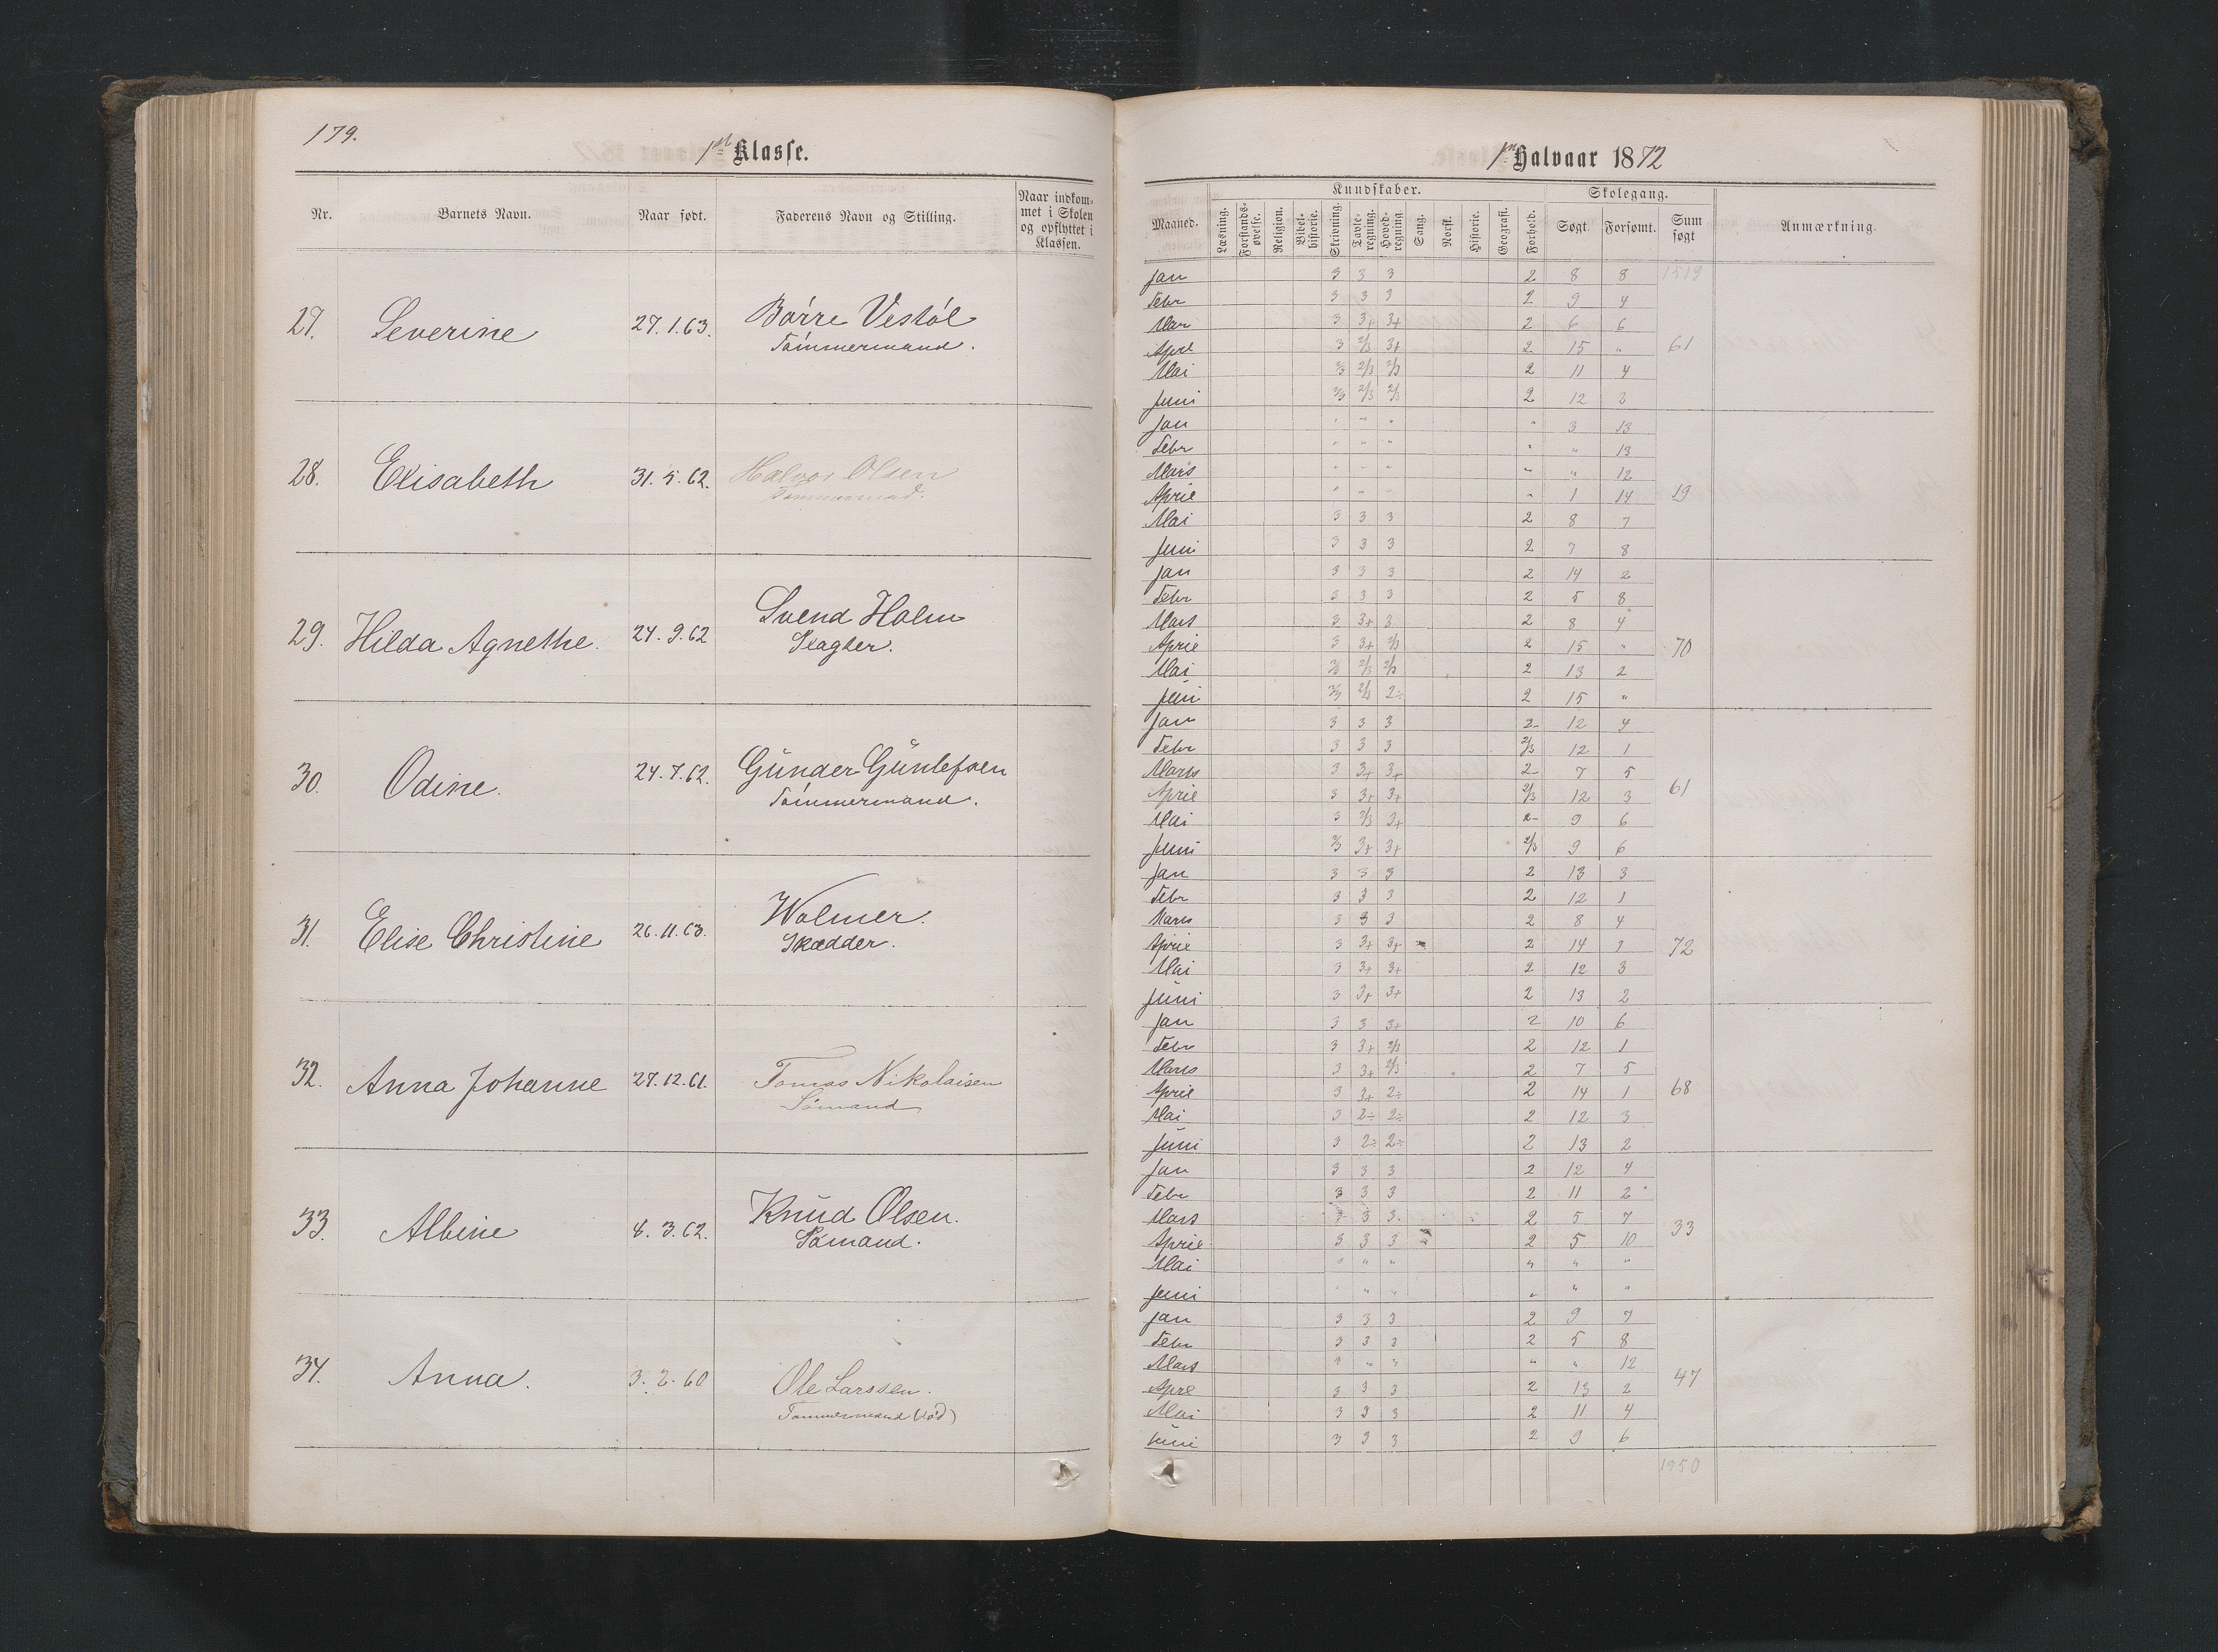 179.
1ste Klasse.
Nr. Barnets Navn. Naar født. Faderens Navn og Stilling. Naar indkommet i Skolen og opflyttet i Klassen.
27. Severine 27.1.63. Børre Vestøl
Tømmermand.
28. Elisabeth 31.5.62. Halvor Olsen
Tømmermand.
29. Hilda Agnethe. 24.9.62 Svend Holm
Slagter.
30. Odine. 24.7.62. Gunder Gunlefsen
Tømmermand.
31. Elise Christine 26.11.63. Wolmer.
Skrædder.
32. Anna Johanne 27.12.61. Tomas Nikolaisen
Sømand
33. Albine 8.3.62. Knud Olsen.
Sømand.
34. Anna. 3.2.60 Ole Larssen.
Tømmermand (død)
1ste Halvaar 1872
Kundskaber. Skolegang.
Maaned. Læsning. Forstands-øvelse. Religion. Bibel-historie. Skrivning. Tavle-regning. Hoved-regning Sang. Norsk. Historie. Geografi. Forhold. Søgt. Forsømt. Sum søgt Anmærkning.
Jan 3 3 3 2 8 8 1519
Febr 3 3 3 2 9 4
Mar 3 3+ 3+ 2 6 6
April 3 2/3 3+ 2 15 " 61
Mai 2/3 2/3 2/3 2 11 4
Juni 2/3 2/3 2/3 2 12 3
Jan " " " " 3 13
Febr " " " " " 13
Mars " " " " " 12
April " " " " 1 14 19
Mai 3 3 3 2 8 7
Juni 3 3 3 2 7 8
Jan 3 3 3 2 14 2
Febr 3 3 3 2 5 8
Mars 3 3+ 3 2 8 4
April 3 3+ 2/3 2 15 " 70
Mai 2/3 2/3 2/3 2 13 2
Juni 2/3 2/3 2÷ 2 15 "
Jan 3 3 3 2- 12 4
Febr 3 3 3 2/3 12 1
Mars 3 3+ 3+ 2- 7 5
April 3 3+ 3+ 2/3 12 3 61
Mai 3 2/3 3+ 2- 9 6
Juni 2/3 3+ 3+ 2/3 9 6
Jan 3 3 3 2 13 3
Febr 3 3 3 2 12 1
Mars 3 3 3 2 8 4
April 3 3+ 3+ 2 14 1 72
Mai 3 3+ 3+ 2 12 3
Juni 3 3+ 3+ 2 13 2
Jan 3 3 3+ 2 10 6
Febr 3 3+ 2/3 2 12 1
Mars 3 3+ 2/3 2 7 5
April 3 3+ 2÷ 2 14 1 68
Mai 3 2÷ 2÷ 2 12 3
Juni 3 2÷ 2÷ 2 13 2
Jan 3 3 3 2 12 4
Febr 3 3 3 2 11 2
Mars 3 3 3 2 5 7
April 3 3 3 2 5 10 33
Mai " " " " " "
Juni " " " " " "
Jan 3 3 3 2 9 7
Febr 3 3 3 2 5 8
Mars " " " " " 12
April 3 3 3 2 13 2 47
Mai 3 3 3 2 11 4
Juni 3 3 3 2 9 6
1950